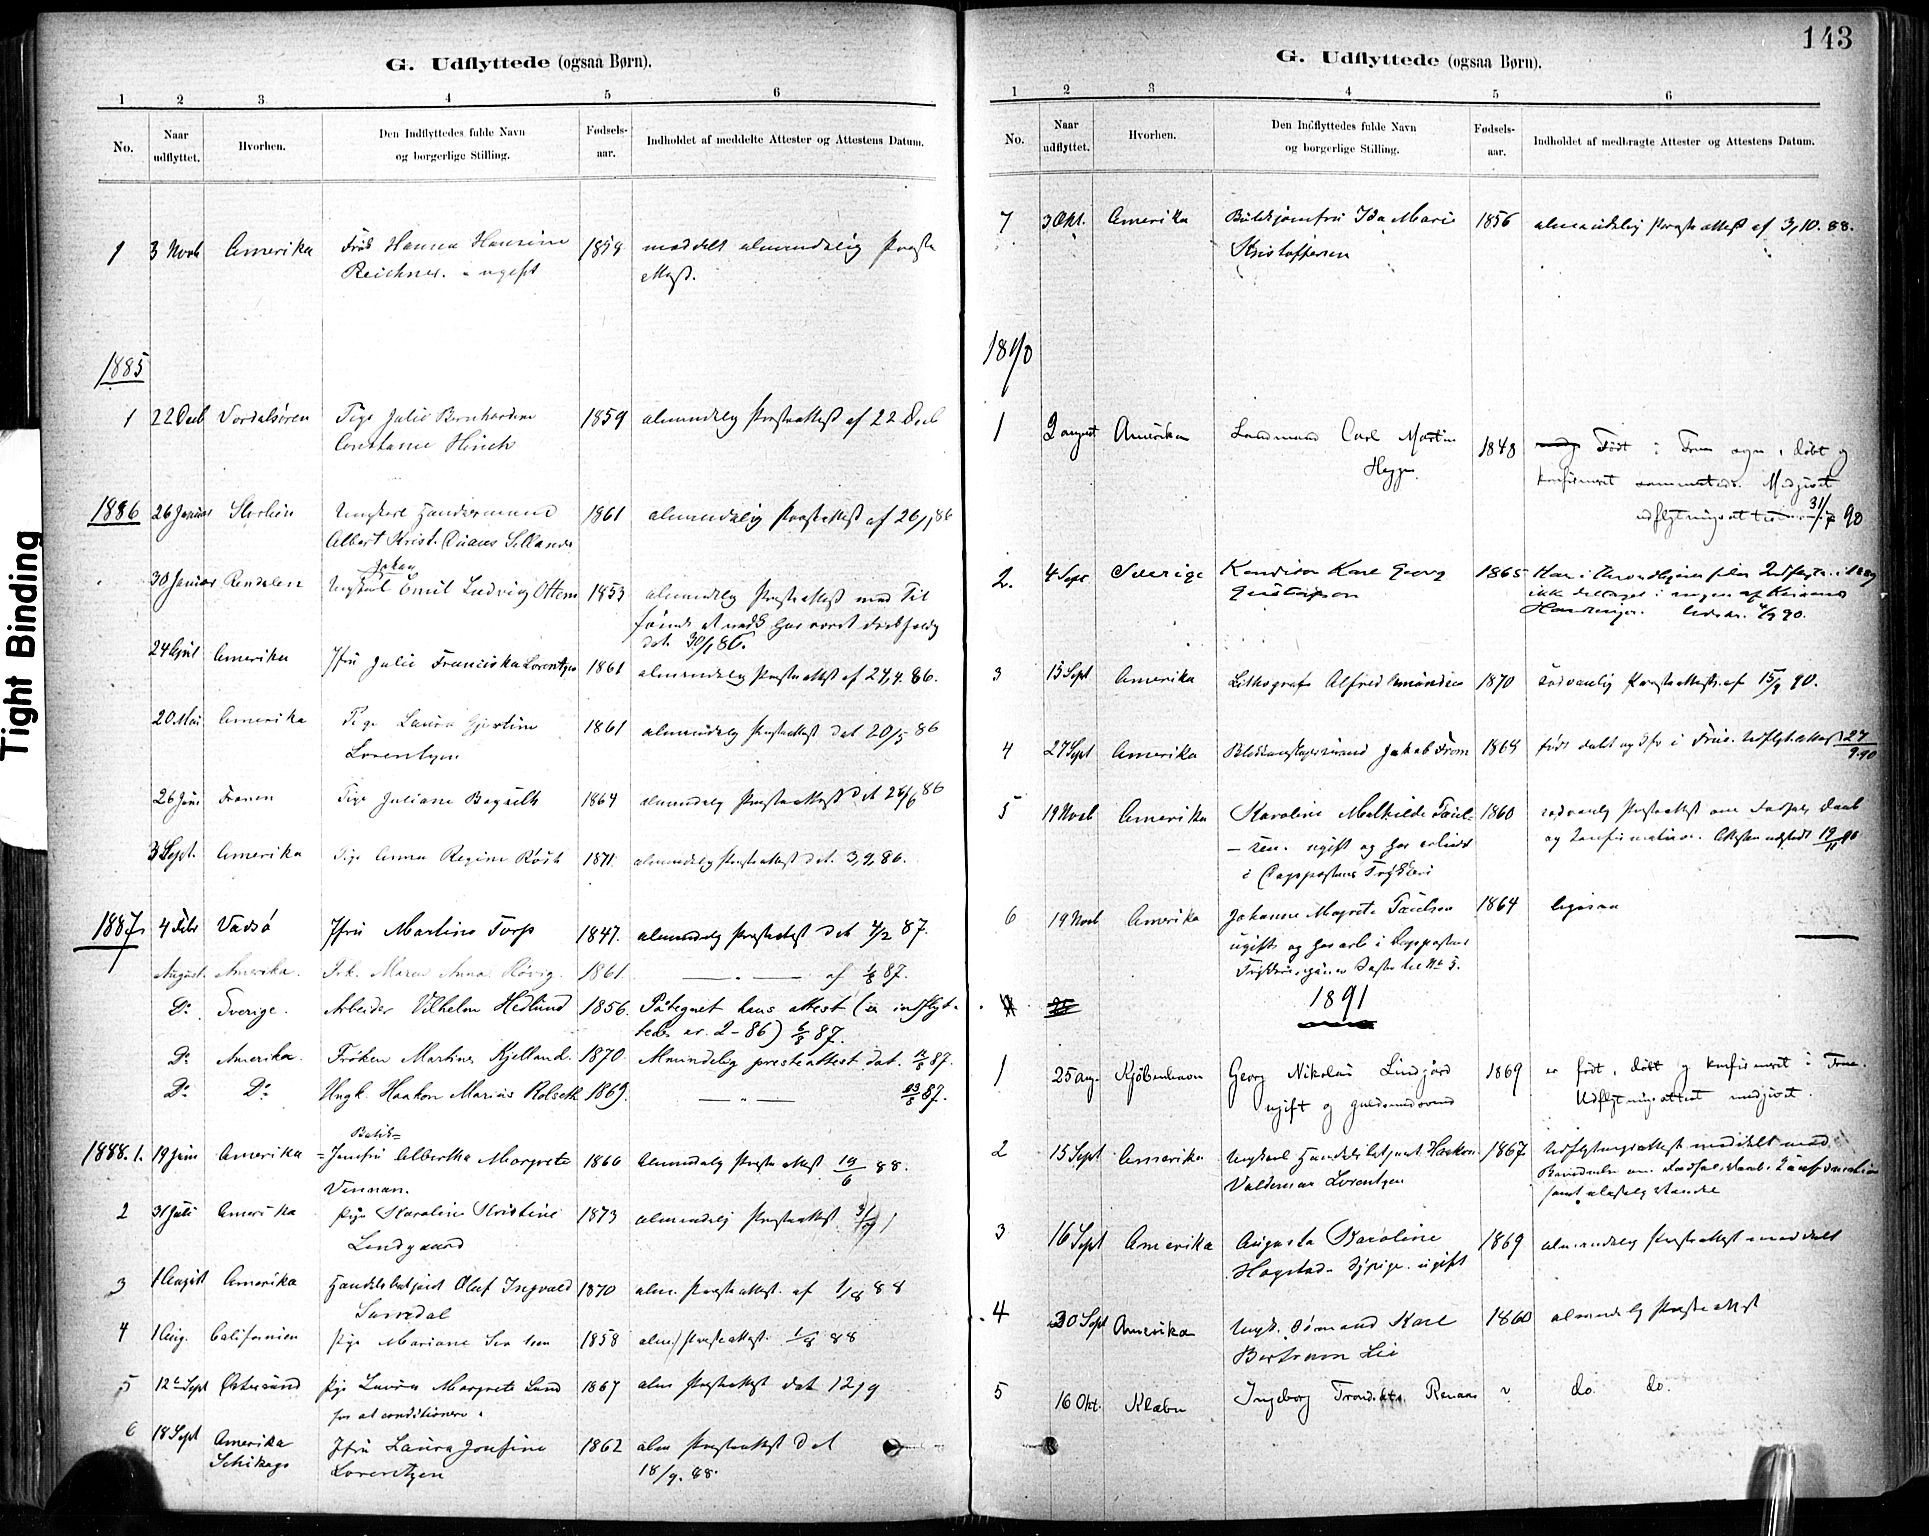 G. Udflyttede (ogsaa Børn).
1 2 3 4 5 6
No. Naar udflyttet. Hvorhen. Den Indflyttedes fulde Navn og borgerlige Stilling. Fødsels-aar. Indholdet af meddelte Attester og Attestens Datum.
1 3 Novb Amerika Frøk Hanna Hansine 1858 meddelt almindelig Preste
Reichner. ugift attest.
1885
1 22 Decb Vordalsøren Pige Julie Bernhardine 1859 almindelig Presteattest af 22 Decb
Constance Hirsch
1886 26 Januar Storlien Ungkarl Handelsmand 1861 almindelig Presteattest af 26/1 86
Albert Krist.
30 Januar Rendalen Ungkarl Emil Johan Ludvig Ottem 1853 almindelig Presteattest med Til
dat. 30/1 86.
24 April Amerika Jfru Julie Franciska Lorentzen 1861 almindelig Presteattest af 24.4.86.
20 Mai Amerika Pige Laura Gjertine 1861 almindelig Presteattest dat 20/5 86
Lorentzen
26 Juni Franen Pige Juliane 1864 almindelig Presteattest dat 26/6 86
3 Sept. Amerika Pige Anna Regine 1871. almindelig Presteattest dat. 3.9.86.
1887 4 Febr Vadsø Jfru Martine Torp 1847. almindelig Presteattest dat 4/2 87.
August. Amerika. Frk. Maren Anna Røvig. 1861. — " — af 1/8 87.
Do Sverige. Arbeider Vilhelm Hedlund 1856. Påtegnet hans attest (se indflyt-
tede nr. 2-86) 6/8 87.
Do Amerika. Frøken Martine Kjelland. 1870. Almindelig presteattest dat. 12/8 87.
Do Do Ungk. Haakon Marius Rolseth 1869. — " — 23/8 87.
1888. 1. 19 Juni Amerika Butik=
=Jomfru Albertha Margrete 1866 Almindelig Presteattest 19/6 88.
Vennan.
2 31 Juli Amerika Pige Karoline Kristine 1873 almindelig Presteattest 31/7
Lindgaard
3 1 August Amerika Handelsbetjent Oluf Ingvald 1870 alm. Presteattest af 1/8 88
Surredal
4 1 Aug. Californien Pige Mariane 1858 alm. Presteattest 1/8 88
5 12te Sept Østersund Pige Laura Margrete Lund 1867 alm Presteattest dat 12/9
for at conditionere.
6 18 Sept Amerika Jfru Laura Josefine 1862 alm Presteattest dat
Schikago Lorentzen 18/9.88.
143
G. Udflyttede (ogsaa Børn).
1 2 3 4 5 6
No. Naar udflyttet. Hvorhen. Den Indflyttedes fulde Navn og borgerlige Stilling. Fødsels-aar. Indholdet af medbragte Attester og Attestens Datum.
7 3 Okt. Amerika Butikjomfru Ida Marie 1856 almindelig Presteattest af 3/10.88.
Kristoffersen
1890
1 2 august Amerika Landmand Carl Martin 1848 Født i Frue sogn, døbt og
Hegge. konfirmeret sammesteds. Medgivet
udflytningsattest 31/7 90
2. 4 Sept Sverige Konditor Karl Georg 1865 Har i Throndhjem siden Indflytn. i 1889
Gustafson ikke deltaget i nogen af Kirkens
Handlinger. Udstd. 4/9 90.
3 15 Sept Amerika Lithograf Alfred Amundsen 1870 sædvanlig Presteattest af 15/9 90.
4 27 Sept Amerika Blikkenslagersvend Jakob From 1864 født døbt og kfr i Frue. Udflyt. Attest 27/9 90
5 19 Novb Amerika Karoline Mathilde Paul- 1860 sædvanlig Presteattest om Fødsel, Daab
-sen. ugift og har arbeidet og Konfirmation. Attesten udstedt 19/11 90
i Dagspostens Trykkeri
6 19 Novb Amerika Johanne Magrete Paulsen 1864 ligesaa
ugift og har arb i Dagspostens
Trykkeri, er Søster til No 5.
1891
1 25 aug. Kjøbenhavn Georg Nikolai Lindgård 1869 er født, døbt og konfirmeret i Frue.
ugift og guldsmedsvend Udflytningsattest medgivet.
2 15 Sept Amerika Ungkarl Handelsbetjent Haakon 1867 Udflytningsattest meddelt med
Valdemar Lorentzen Bevidnelse om Fødsel, Daab, Konfirmation
samt ægteskab. Stand
3 16 Sept Amerika Augusta Karoline 1869 almindelig Presteattest meddelt
Hagstad. Sypige. ugift
4 30 Sept Amerika Ungk. Sømand Karl 1860 almindelig Presteattest
Bertram Lie
5 16 Okt. Klæbu Ingeborg Trondsdtr. Renaas ? do. do.
Tight Binding